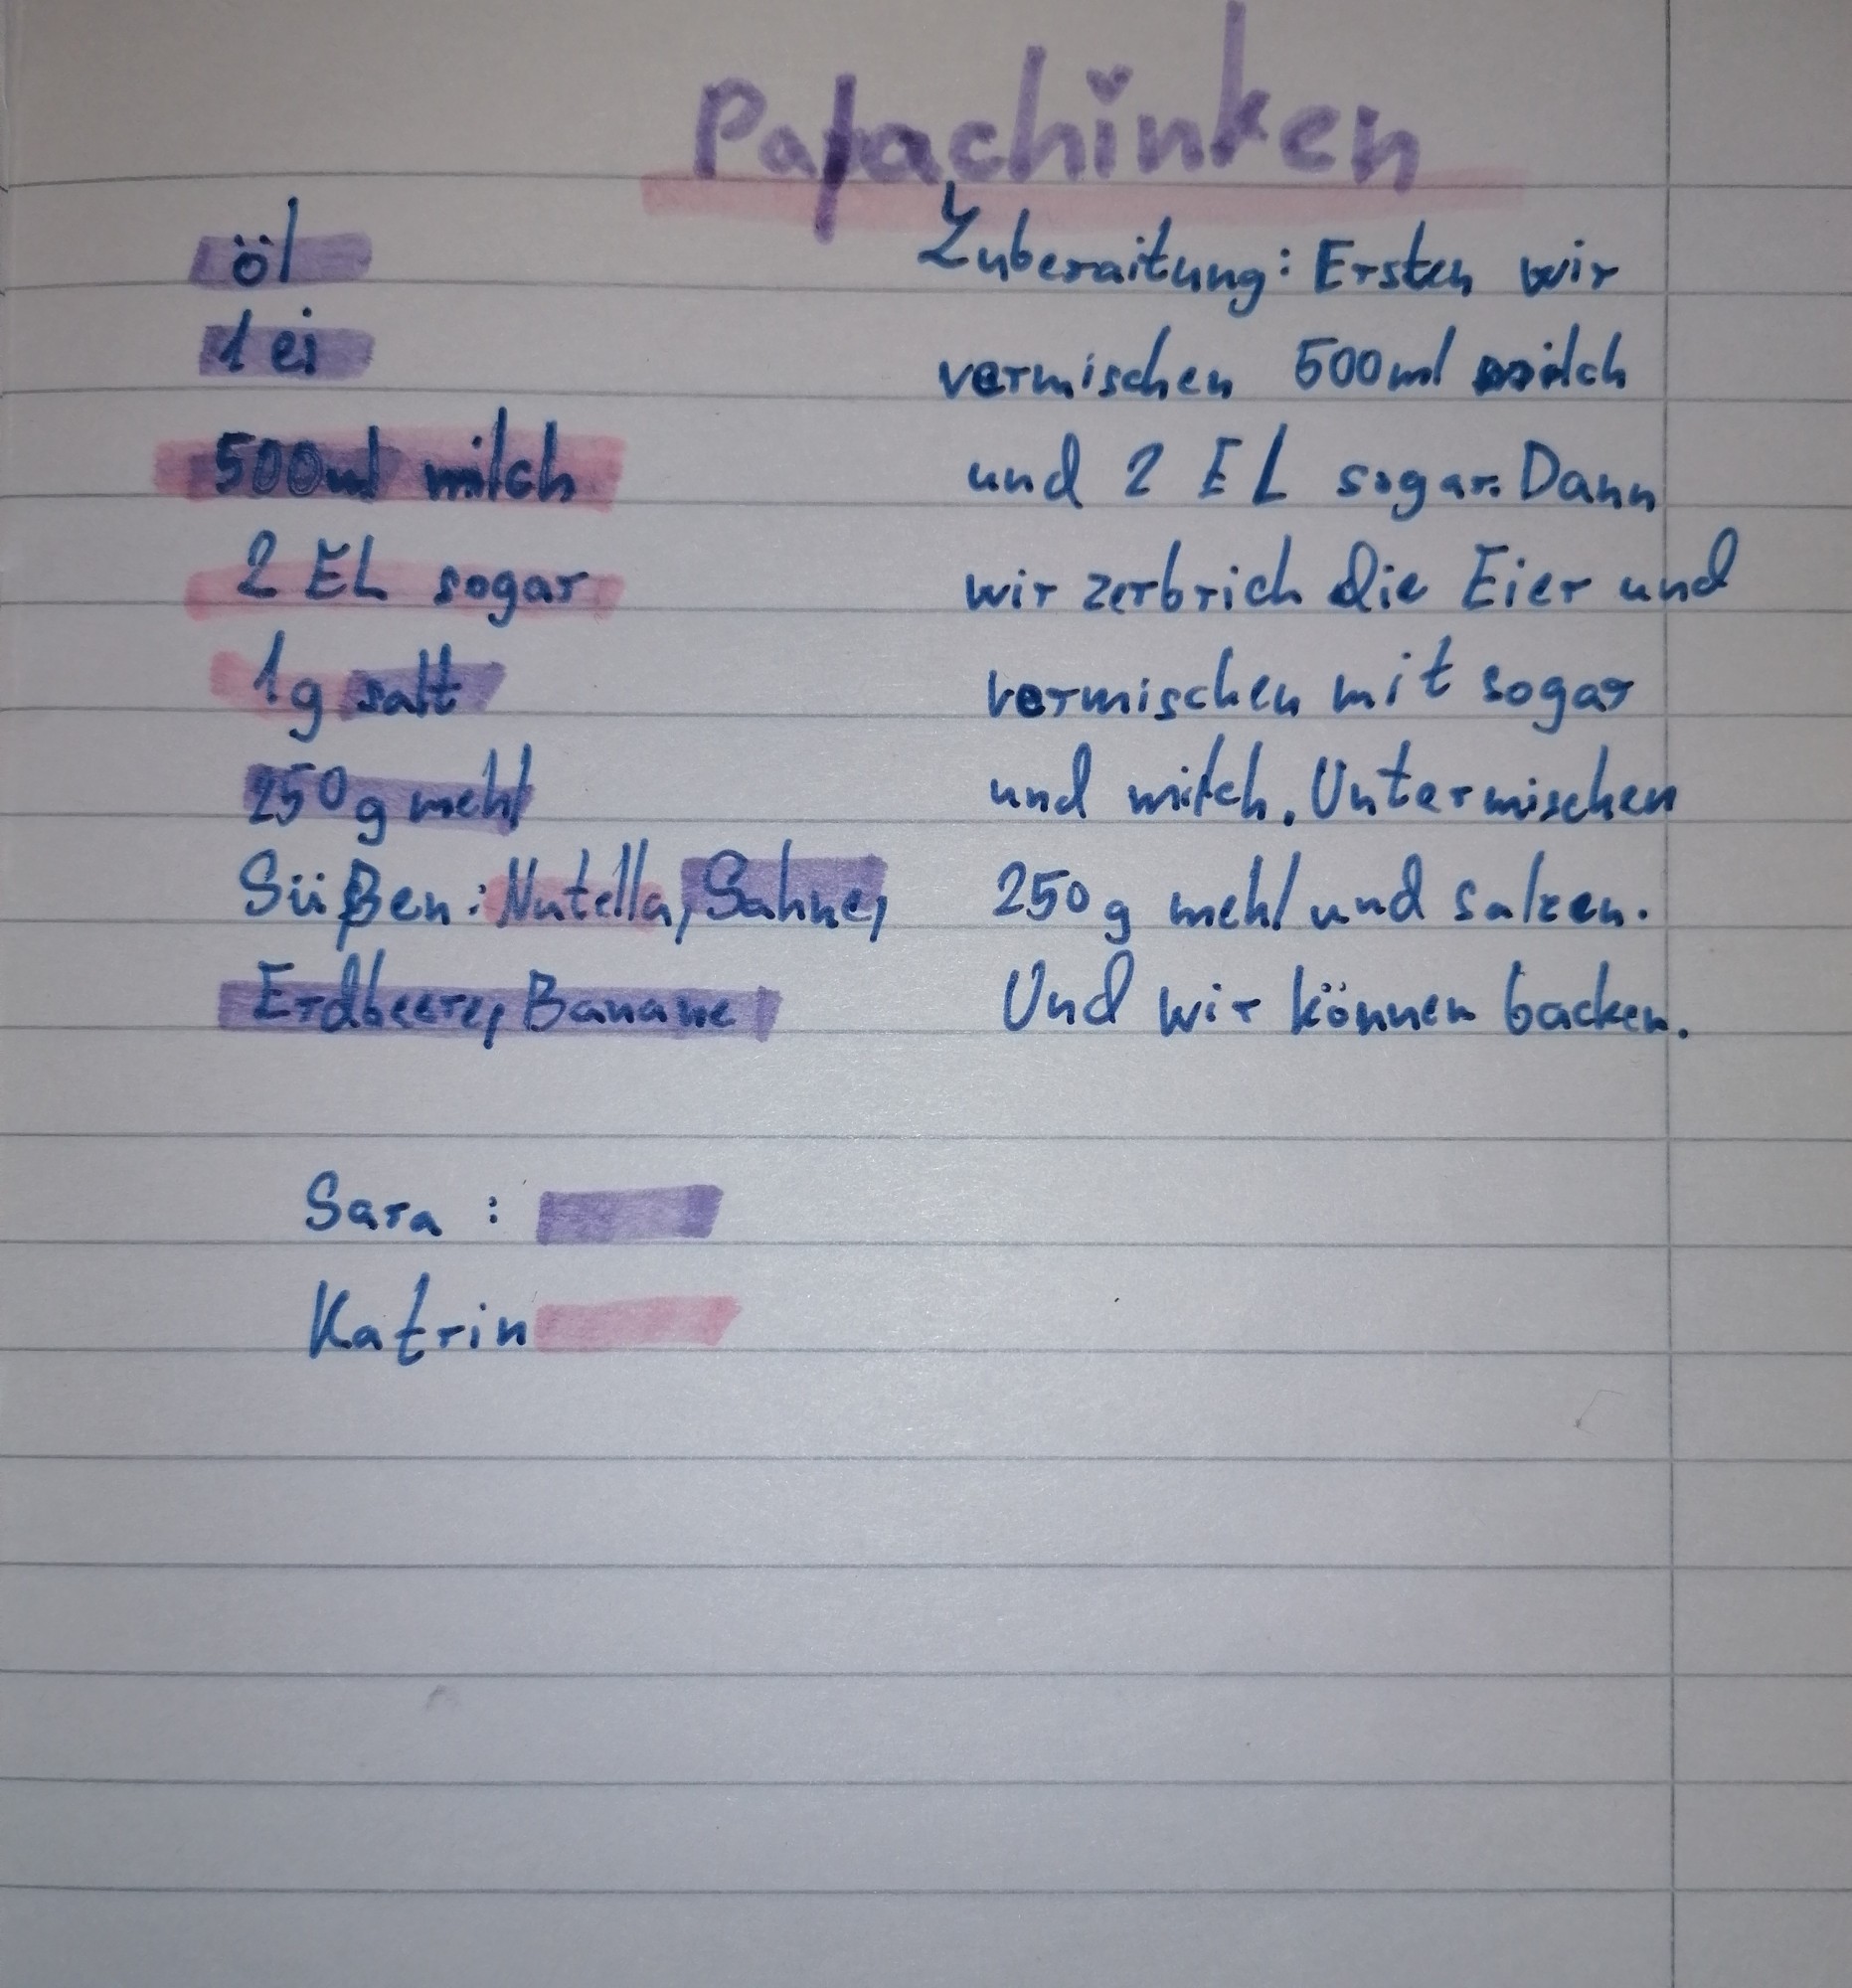 Palachinken
öl
1 ei
500ml milch
2 EL sogar
1g salt
250g mehl
Süßen: Nutella, Sahne,
Erdbeere, Banane
Zuberaitung: Ersten wir
vermischen 500ml milch
und 2 EL sogar. Dann
wir zerbrich die Eier und
vermischen mit sogar
und milch. Untermischen
250g mehl und salzen.
Und wir können backen.
Sara :
Katrin